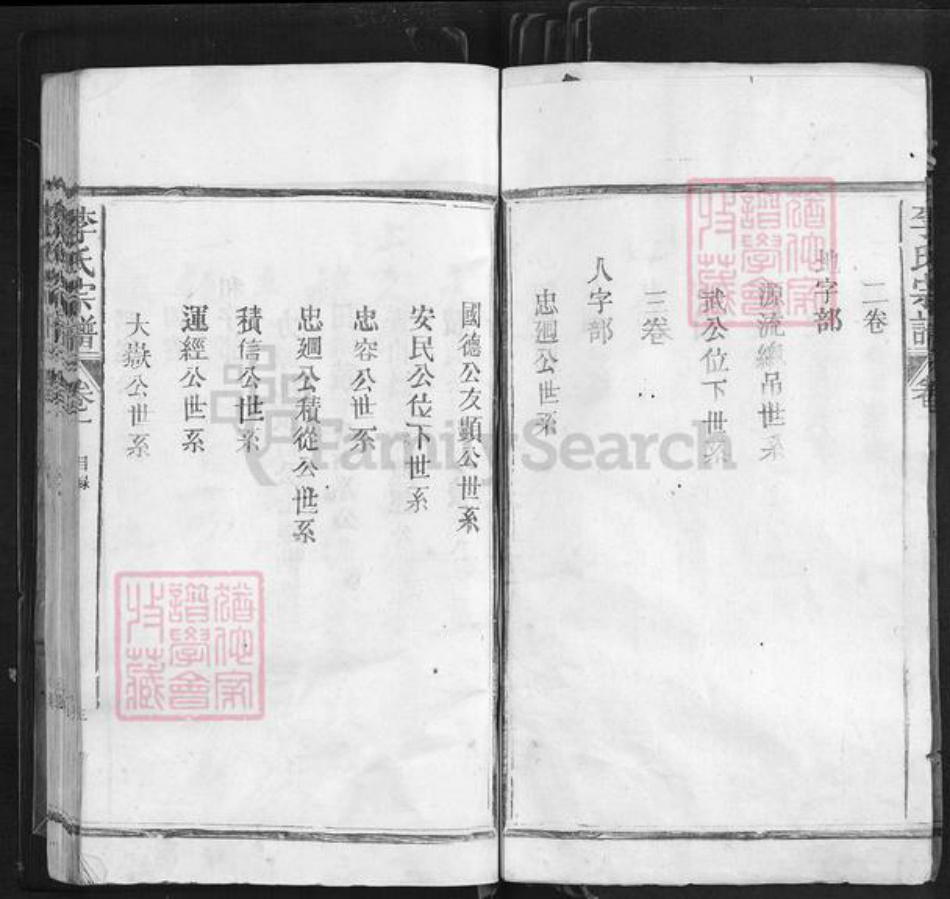 李氏宗譜
二卷
地字部
源流總吊世系
武公位下世系
三卷
人字部
忠廻公世系
國德公友顯公世系
安民公位下世系
忠容公世系
忠廻公積從公世系
積信公世系
運經公世系
大嶽公世系
李氏宗譜 卷一 目錄 三
譜學會
收藏
FamilySearch